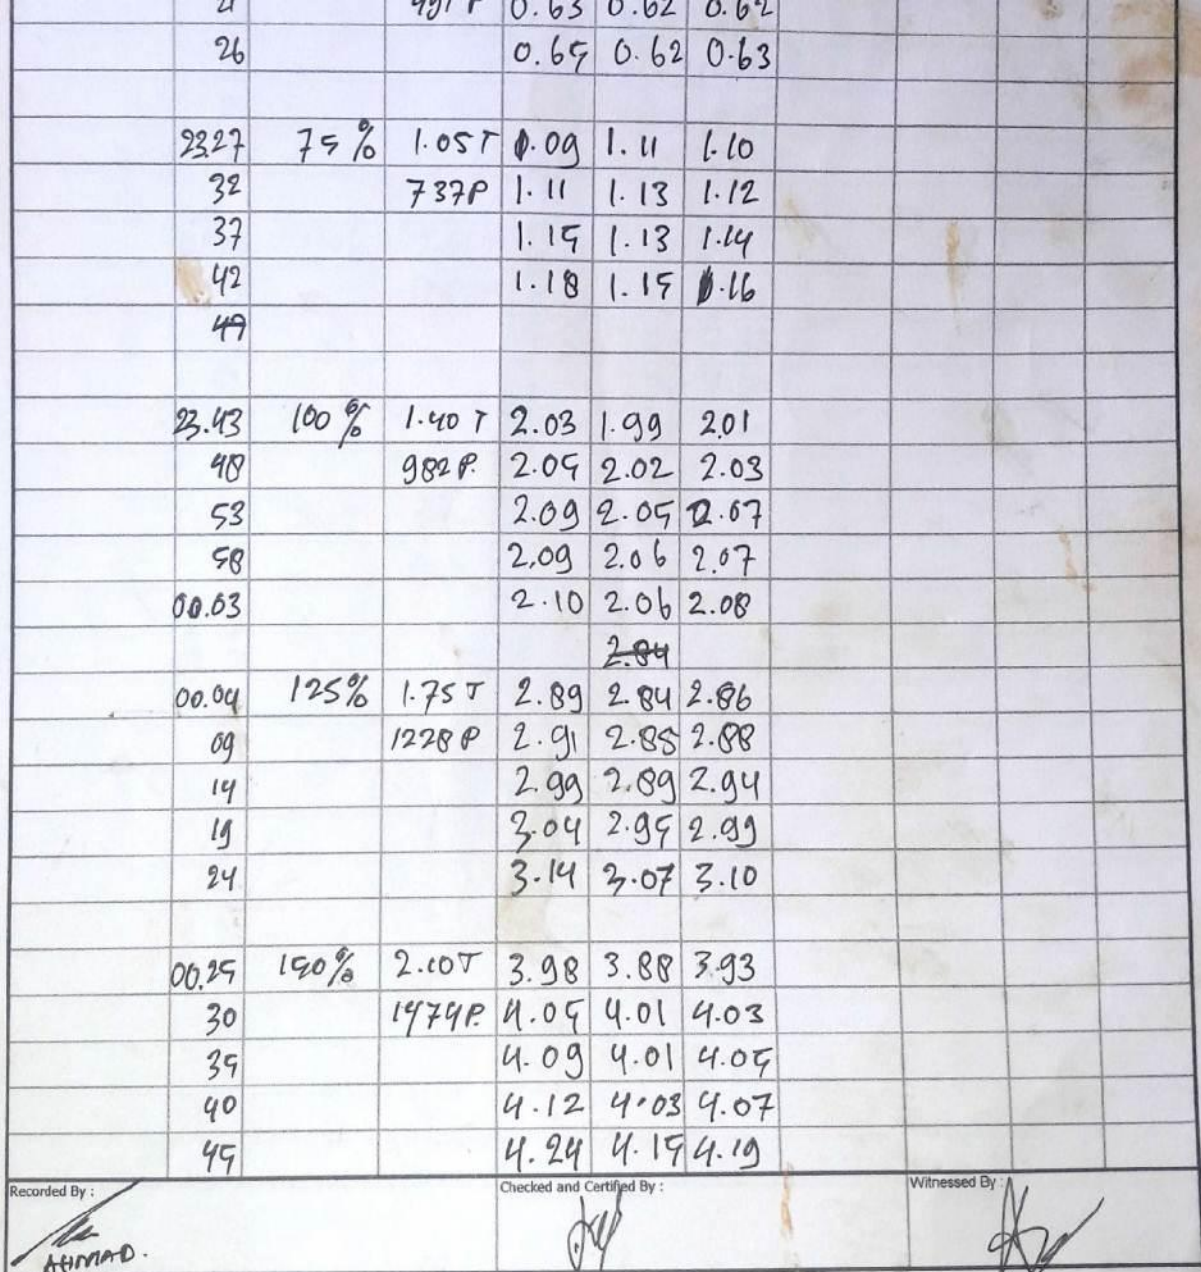 21 491 P 0.63 0.62 0.62
26 0.65 0.62 0.63
23.27 75% 1.05T 1.09 1.11 1.10
32 737P 1.11 1.13 1.12
37 1.15 1.13 1.14
42 1.18 1.15 1.16
47
23.43 100% 1.40 T 2.03 1.99 2.01
48 982 P. 2.05 2.02 2.03
53 2.09 2.05 2.07
58 2.09 2.06 2.07
00.03 2.10 2.06 2.08
2.84
00.04 125% 1.75 T 2.89 2.84 2.86
09 1228 P 2.91 2.85 2.88
14 2.99 2.89 2.94
19 3.04 2.95 2.99
24 3.14 3.07 3.10
00.25 150% 2.10T 3.98 3.88 3.93
30 1474P. 4.05 4.01 4.03
35 4.09 4.01 4.05
40 4.12 4.03 4.07
45 4.24 4.15 4.19
Recorded By : Checked and Certified By : Witnessed By :
AHMAD.